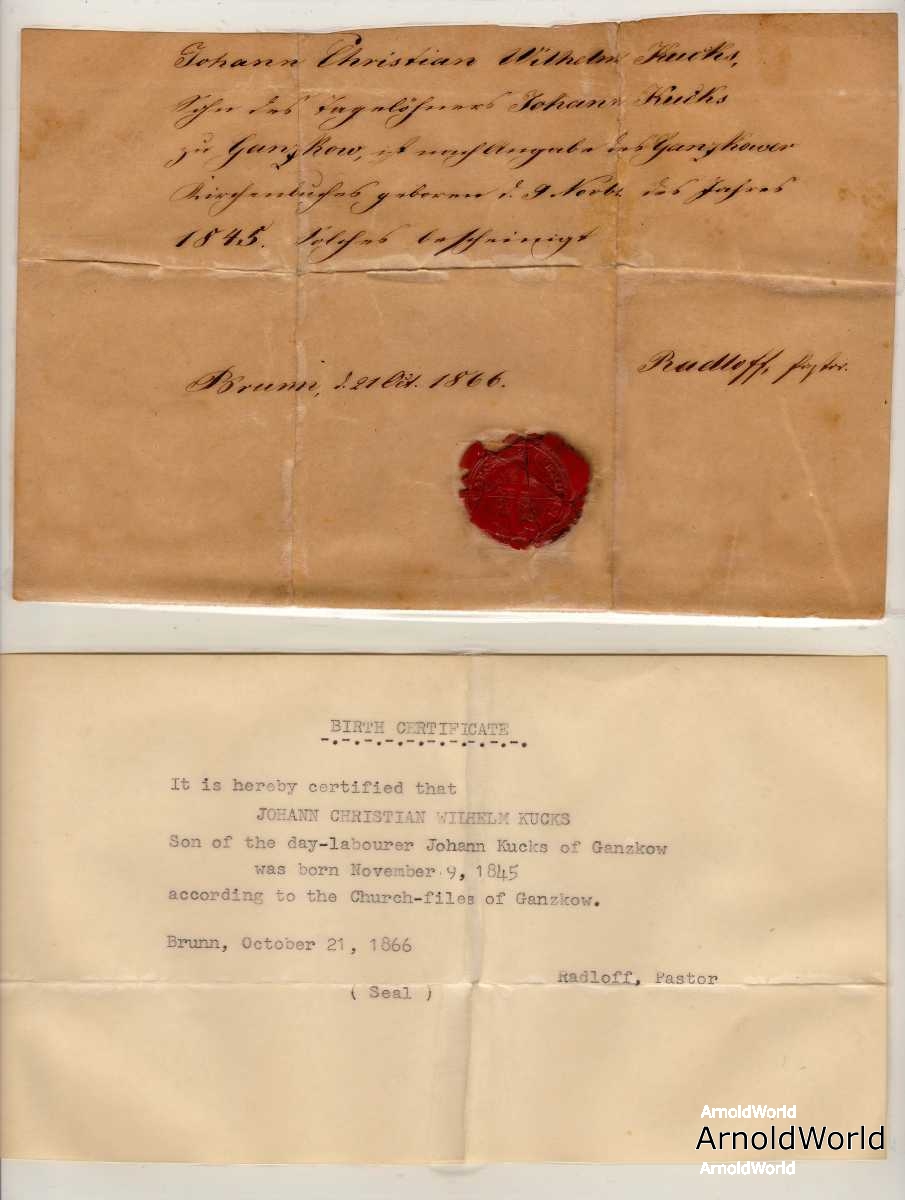 Johann Christian Wilhelm Kucks,
Sohn des Tagelöhners Johann Kucks
zu Ganzkow, ist nach Angabe des Ganzkower
Kirchenbuches geboren d. 9 Novbr. des Jahres
1845. Solches bescheinigt
Brunn, d. 21 Oct. 1866.
Radloff, Pastor.
BIRTH CERTIFICATE
It is hereby certified that
JOHANN CHRISTIAN WILHELM KUCKS
Son of the day-labourer Johann Kucks of Ganzkow
was born November 9, 1845
according to the Church-files of Ganzkow.
Brunn, October 21, 1866
Radloff, Pastor
( Seal )
ArnoldWorld
ArnoldWorld
ArnoldWorld